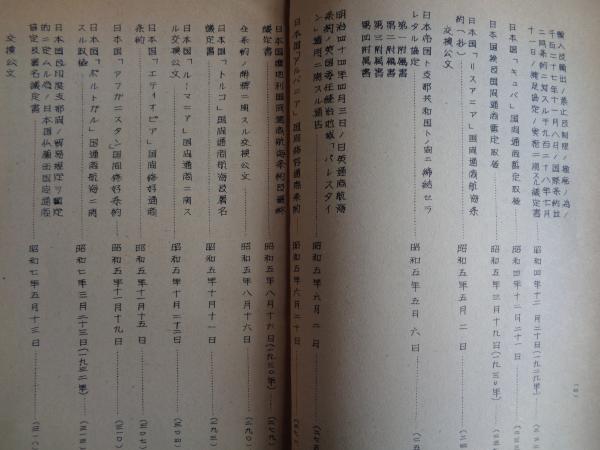 輸入及輸出ノ禁止及制限ノ撤廃ノ為ノ
千九百二十七年十一月八日ノ国際条約並
十一日ノ補足協定ノ実施ニ関スル議定書
昭和四年十二月二十日(一九二九年)
日本国「キュバ」国間通商暫定取極
昭和四年十二月二十一日
日本国埃及国間通商暫定取極
昭和五年三月十九日(一九三〇年)
日本国「リスアニア」国間通商航海条
約(抄)
昭和五年五月二日
交換公文
日本帝国ト支那共和国トノ間ニ締結セラ
レタル協定
昭和五年五月六日
第一附属書
第二附属書
第三附属書
第四附属書
明治四十四年四月三日ノ日英通商航海
条約ノ英国委任統治地域「パレスタイ
ン」適用ニ関スル通告
昭和五年六月二日
日本国「アルバニア」国間通商航海条約
昭和五年六月二十日
日本国墺地利国間通商航海条約及最終
議定書
昭和五年八月十六日(一九三〇年)
仝条約ノ解釈ニ関スル交換公文
昭和五年八月十六日
日本国「トルコ」国間通商航海及署名
議定書
昭和五年十月十一日
日本国「ルーマニア」国間通商ニ関ス
ル交換公文
昭和五年十月二十二日
日本国「エティオピア」国間修好通商
条約
昭和五年十一月十五日
日本国「アフガニスタン」国間修好条約
昭和五年十一月十九日
日本国「ポルトガル」国通商航海ニ関
スル取極
昭和七年三月二十三日(一九三二年)
日本国及印度支那間ノ貿易規定ヲ暫定
的ニ定ムル為ノ日本国仏蘭西国間通商
協定及署名議定書
昭和七年五月十三日
交換公文